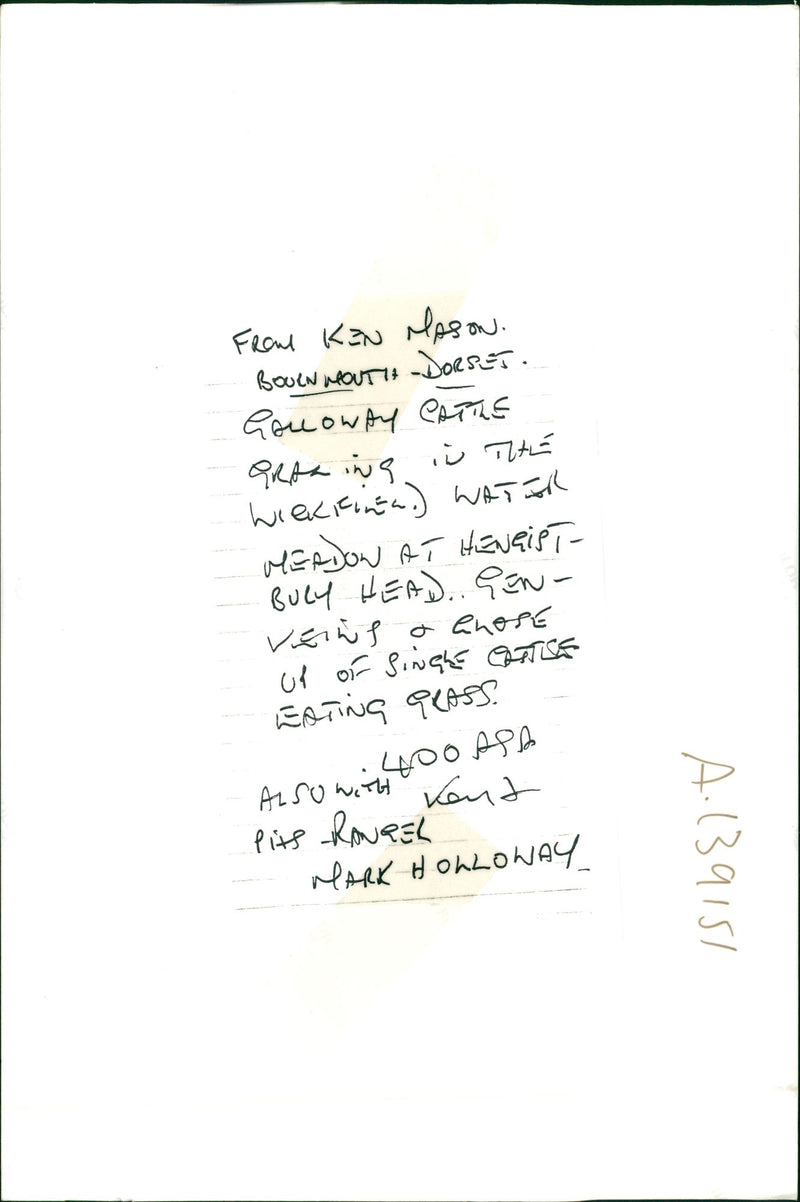 FROM KEN MASON.
BOURNMOUTH - DORSET.
GALLOWAY CATTLE
GRAZING IN THE
WICKFIELD WATER
MEADOW AT HENGIST-
BURY HEAD.. GEN-
VEIWS & CLOSE
UP OF SINGLE CATTLE
EATING GRASS.
400 ASA
ALSO WITH
PIXS - RANGER
MARK HOLLOWAY
A.139151